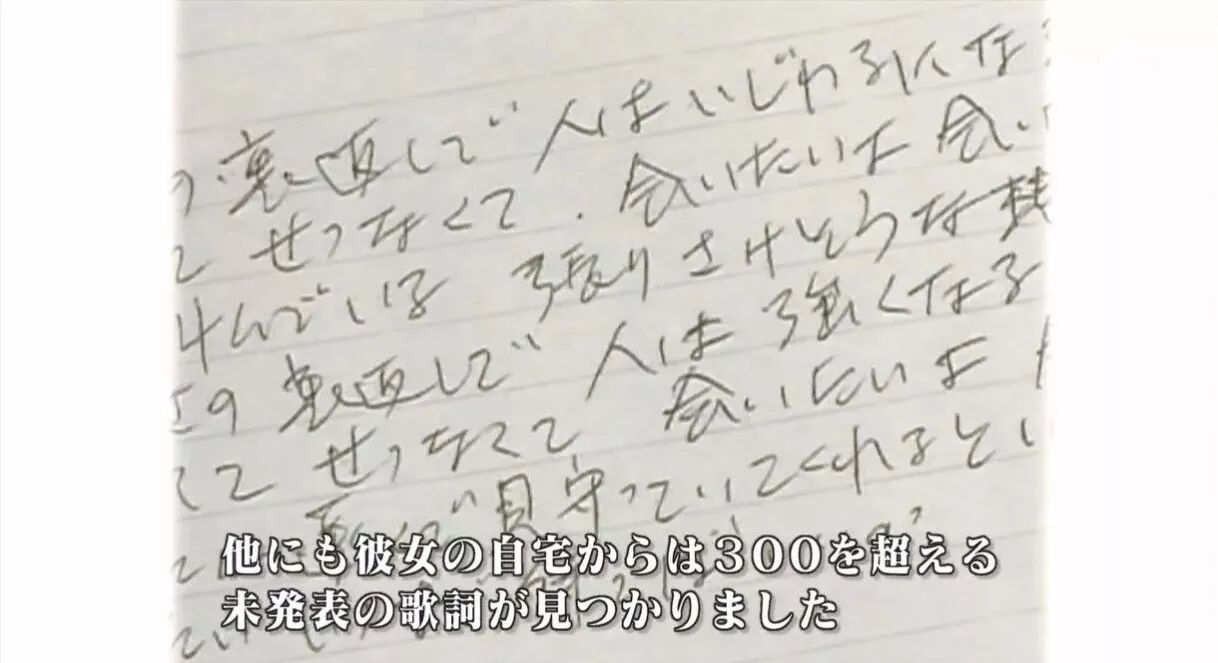 裏返しで 人はいじわるにな
て せつなくて 会いたいよ 会い
んでいる 張りさけそうな
の 裏返しで 人は 強くなる
くて せつなくて 会いたいよ
見守っていてくれると
他にも彼女の自宅からは300を超える
未発表の歌詞が見つかりました